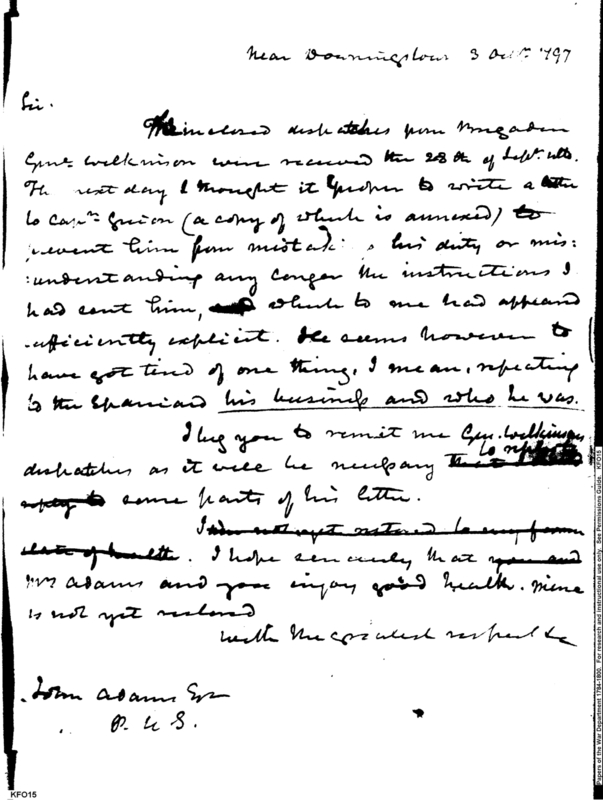 Near Downingstown 3 Octr. 1797
Sir.
The inclosed dispatches from Brigadier
Genl. Wilkinson were received the 28th of Sept. ulto.
The next day I thought it proper to write a letter
to Capn. Guion (a copy of which is annexed) to
prevent him from mistaking his duty or mis:
:understanding any longer the instructions I
had sent him, and which to me had appeared
sufficiently explicit. He seems however to
have got tired of one thing, I mean, repeating
to the Spaniard his business and who he was.
I beg you to remit me Gen. Wilkinsons
dispatches as it will be necessary that I should to reply to
reply to some parts of his letter.
I am not yet restored to my former
state of health. I hope sincerely that you and
Mrs Adams and you enjoy good health. mine
is not yet restored
with the greatest respect &c
John Adams Esqr
P. U S.
KFO15
Papers of the War Department 1784-1800. For research and instructional use only. See Permissions Guide. KFO15